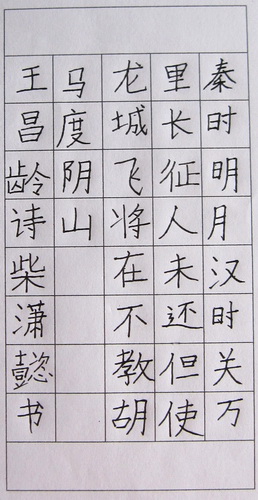 秦时明月汉时关万
里长征人未还但使
龙城飞将在不教胡
马度阴山
王昌龄诗柴潇懿书